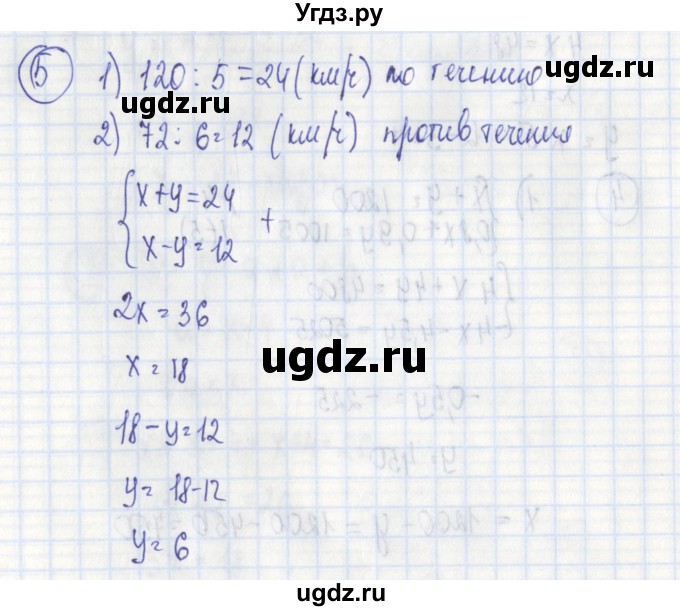 Угдз.ру
5 1) 120 : 5 = 24 (км/ч) по течению
2) 72 : 6 = 12 (км/ч) против течения
{ x + y = 24
x - y = 12 +
2x = 36
x = 18
18 - y = 12
y = 18 - 12
y = 6
ugdz.ru
ugdz.ru
ugdz.ru
ugdz.ru
ugdz.ru
ugdz.ru
ugdz.ru